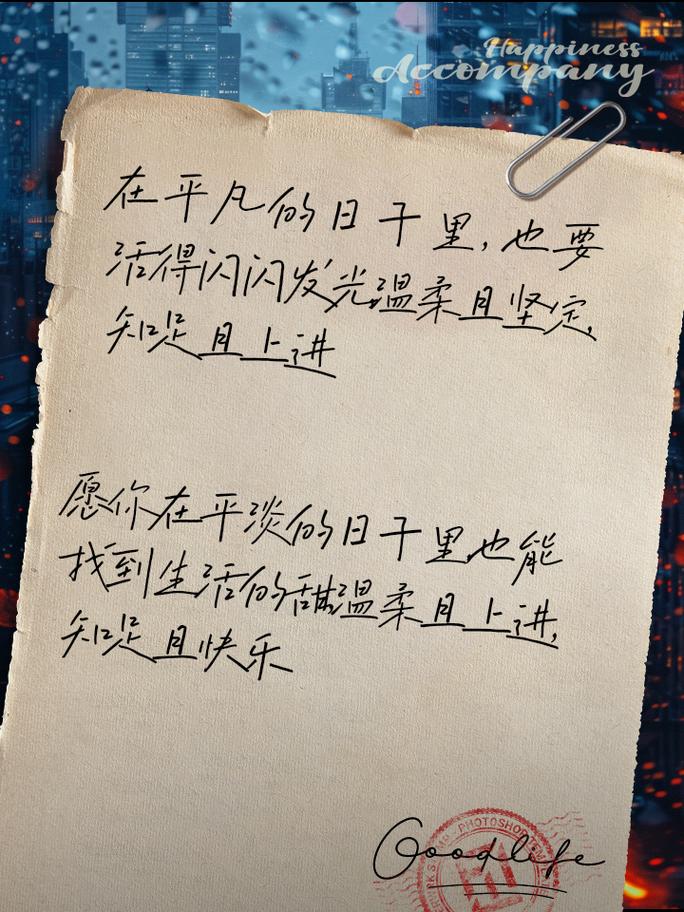 Happiness
Accompany
在平凡的日子里,也要
活得闪闪发光,温柔且坚定,
知足且上进
愿你在平淡的日子里也能
找到生活的甜温柔且上进,
知足且快乐
PHOTOSHOP
Goodlife